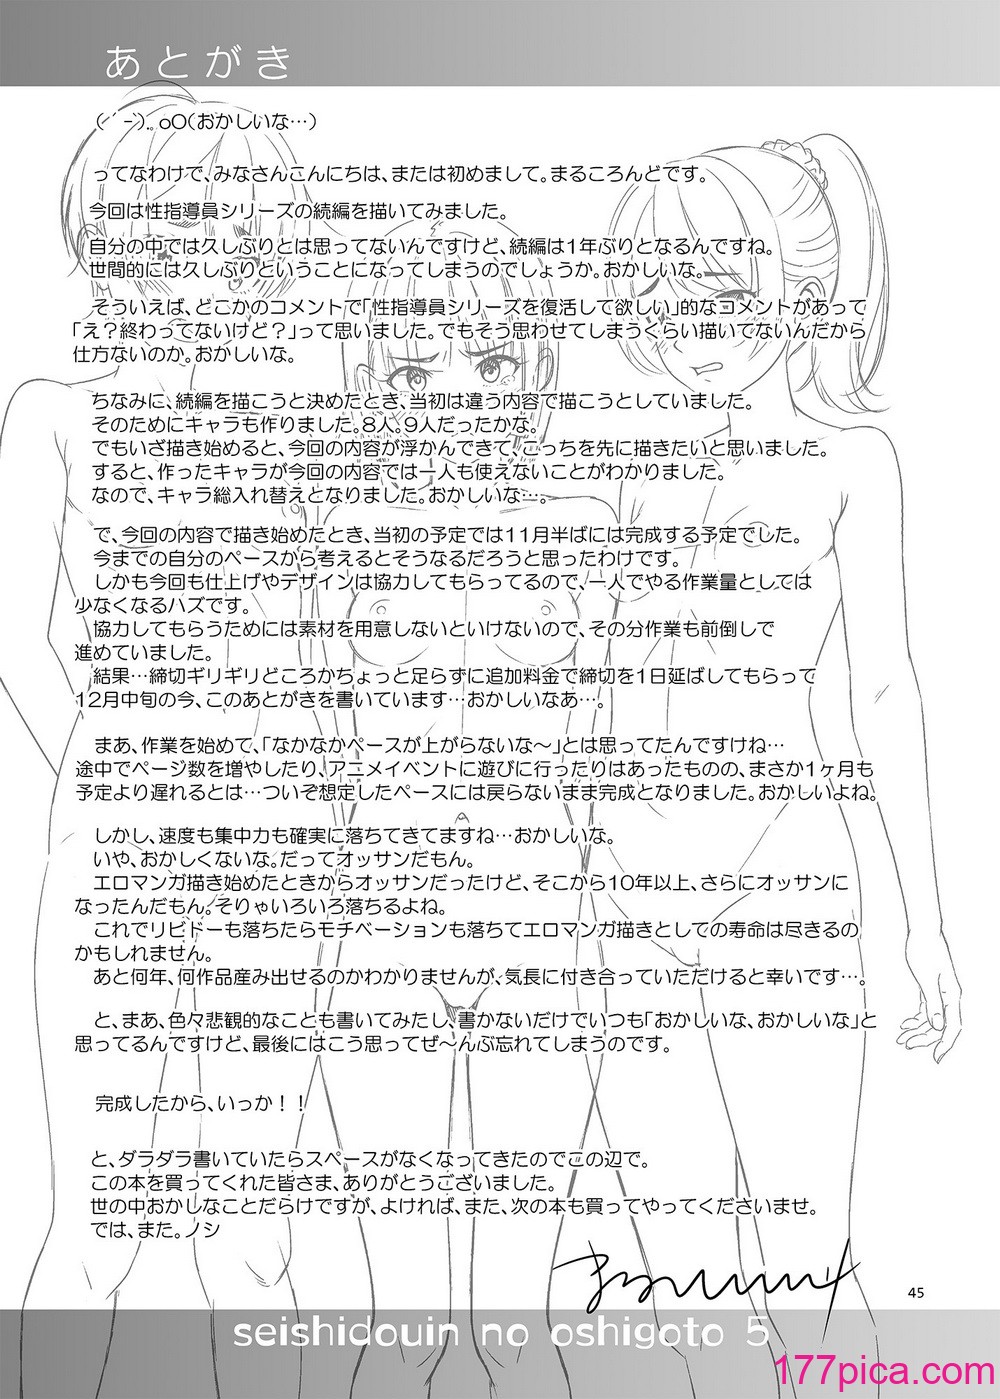 あとがき
(´-`).oO(おかしいな…)
ってなわけで、みなさんこんにちは、または初めまして。まるころんどです。
今回は性指導員シリーズの続編を描いてみました。
自分の中では久しぶりとは思ってないんですけど、続編は1年ぶりとなるんですね。
世間的には久しぶりということになってしまうのでしょうか。おかしいな。
そういえば、どこかのコメントで「性指導員シリーズを復活して欲しい」的なコメントがあって
「え?終わってないけど?」って思いました。でもそう思わせてしまうくらい描いてないんだから
仕方ないのか。おかしいな。
ちなみに、続編を描こうと決めたとき、当初は違う内容で描こうとしていました。
そのためにキャラも作りました。8人。9人だったかな。
でもいざ描き始めると、今回の内容が浮かんできて、こっちを先に描きたいと思いました。
すると、作ったキャラが今回の内容では一人も使えないことがわかりました。
なので、キャラ総入れ替えとなりました。おかしいな…。
で、今回の内容で描き始めたとき、当初の予定では11月半ばには完成する予定でした。
今までの自分のペースから考えるとそうなるだろうと思ったわけです。
しかも今回も仕上げやデザインは協力してもらってるので、一人でやる作業量としては
少なくなるハズです。
協力してもらうためには素材を用意しないといけないので、その分作業も前倒しで
進めていました。
結果…締切ギリギリどころかちょっと足らずに追加料金で締切を1日延ばしてもらって
12月中旬の今、このあとがきを書いています…おかしいなあ…。
まあ、作業を始めて、「なかなかペースが上がらないな〜」とは思ってたんですけね…
途中でページ数を増やしたり、アニメイベントに遊びに行ったりはあったものの、まさか1ヶ月も
予定より遅れるとは…ついぞ想定したペースには戻らないまま完成となりました。おかしいよね。
しかし、速度も集中力も確実に落ちてきてますね…おかしいな。
いや、おかしくないな。だってオッサンだもん。
エロマンガ描き始めたときからオッサンだったけど、そこから10年以上、さらにオッサンに
なったんだもん。そりゃいろいろ落ちるよね。
これでリビドーも落ちたらモチベーションも落ちてエロマンガ描きとしての寿命は尽きるの
かもしれません。
あと何年、何作品産み出せるのかわかりませんが、気長に付き合っていただけると幸いです…。
と、まあ、色々悲観的なことも書いてみたし、書かないだけでいつも「おかしいな、おかしいな」と
思ってるんですけど、最後にはこう思ってぜ〜んぶ忘れてしまうのです。
完成したから、いっか！！
と、ダラダラ書いていたらスペースがなくなってきたのでこの辺で。
この本を買ってくれた皆さま、ありがとうございました。
世の中おかしなことだらけですが、よければ、また、次の本も買ってやってくださいませ。
では、また。ノシ
45
seishidouin no oshigoto 5
177pica.com